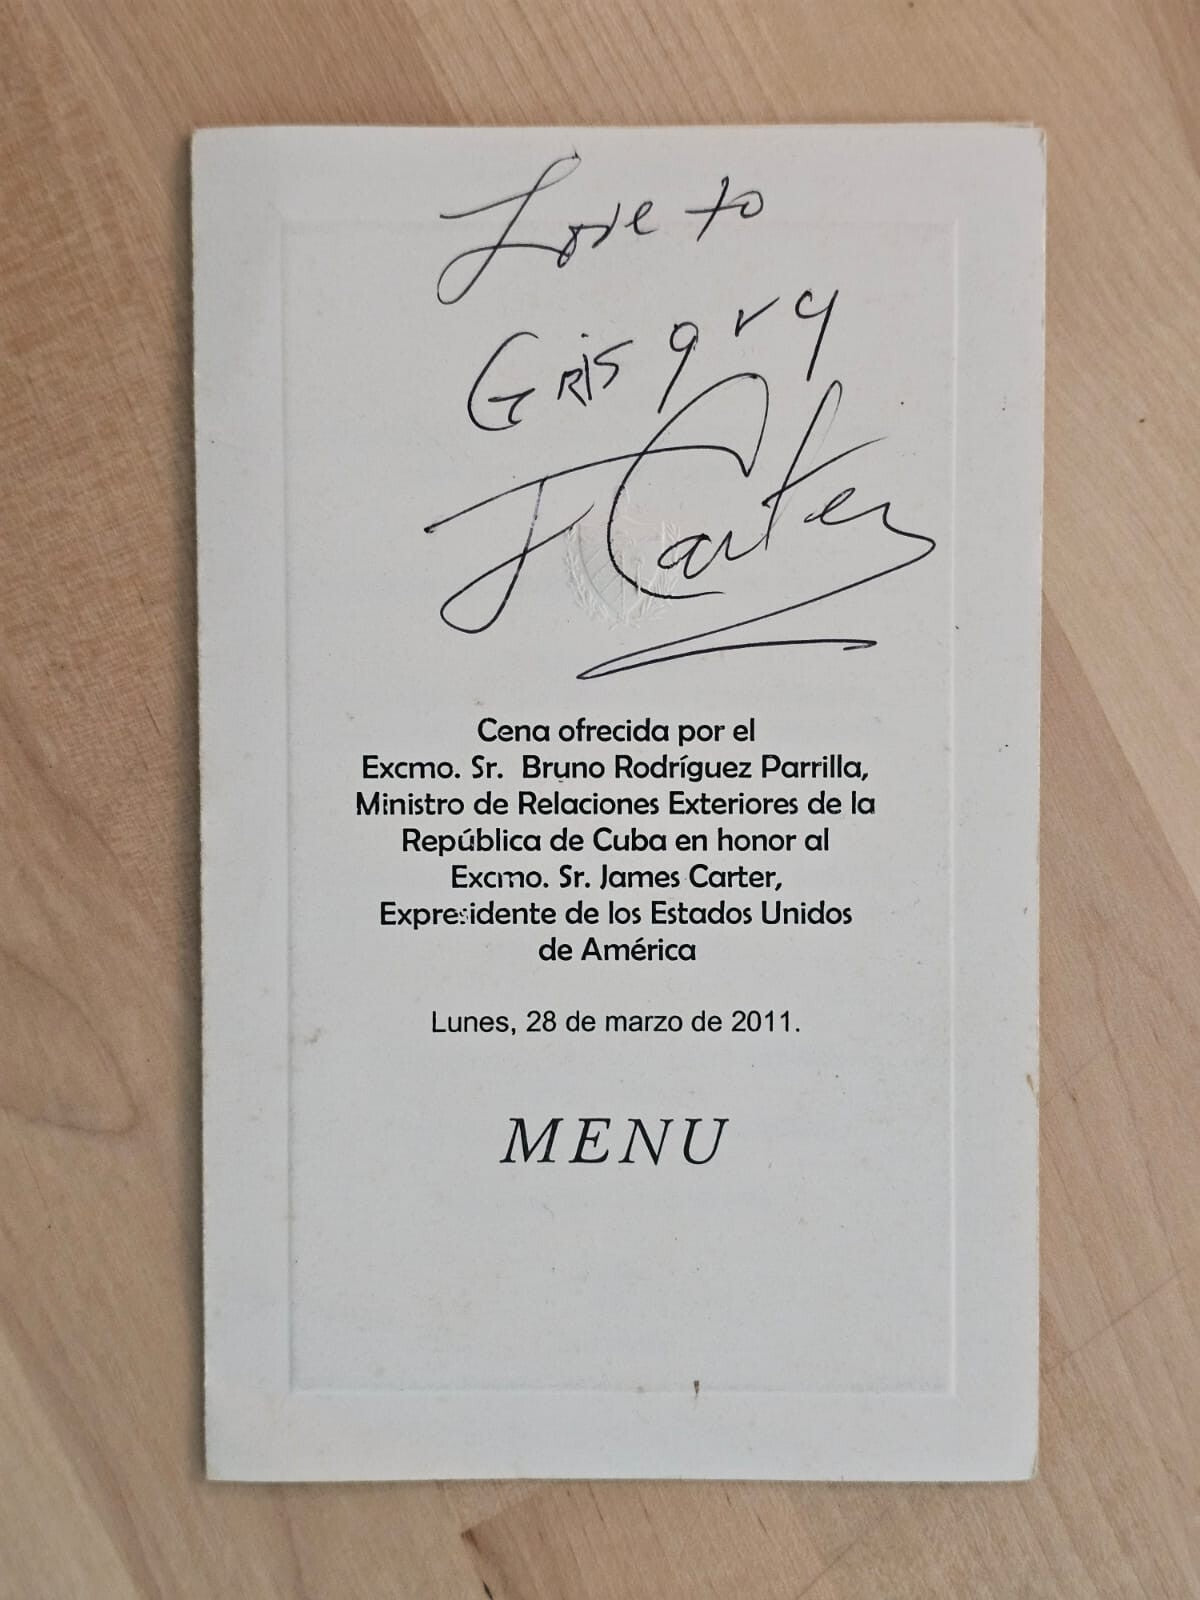 Love to
Grisgry
J Carter
Cena ofrecida por el
Excmo. Sr. Bruno Rodríguez Parrilla,
Ministro de Relaciones Exteriores de la
República de Cuba en honor al
Excmo. Sr. James Carter,
Expresidente de los Estados Unidos
de América
Lunes, 28 de marzo de 2011.
MENU